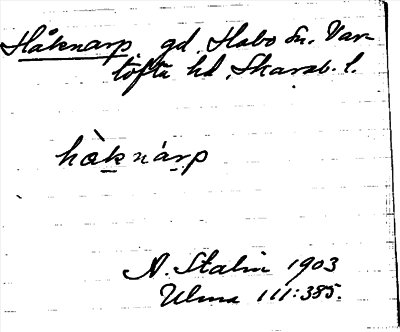 Håknarp gd. Habo sn. Var-
tofta hd, Skarab. l.
hàknárp
A. Stalin 1903
Ulma 111:385.